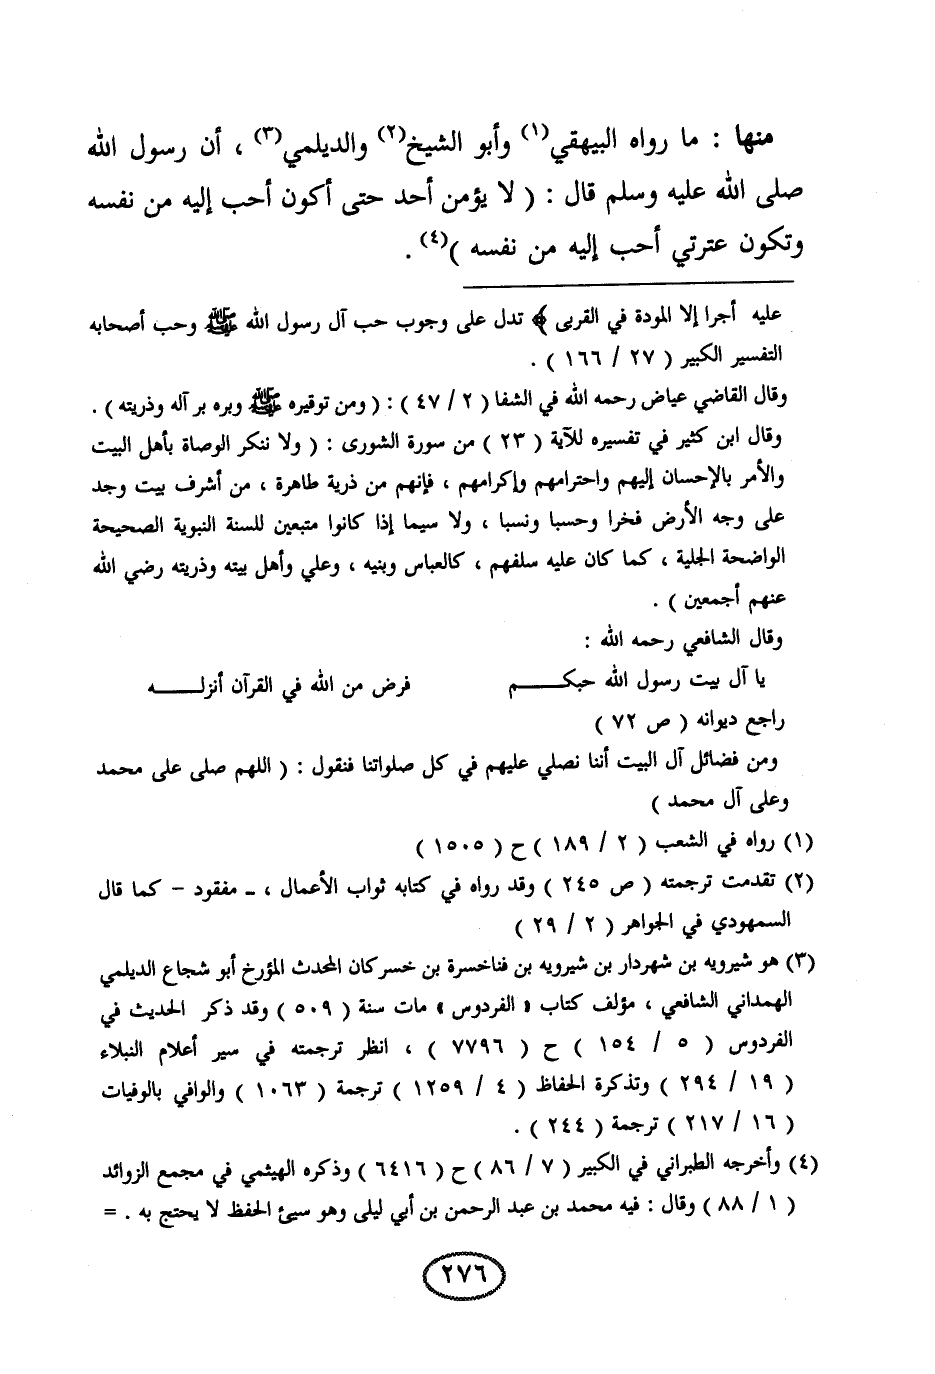 منها : ما رواه البيهقي(١) وأبو الشيخ(٢) والديلمي(٣) ، أن رسول الله
صلى الله عليه وسلم قال : ( لا يؤمن أحد حتى أكون أحب إليه من نفسه
وتكون عترتي أحب إليه من نفسه )(٤) .
عليه أجرا إلا المودة في القربى ﴾ تدل على وجوب حب آل رسول الله ﷺ وحب أصحابه
التفسير الكبير ( ٢٧ / ١٦٦ ) .
وقال القاضي عياض رحمه الله في الشفا ( ٢ / ٤٧ ) : ( ومن توقيره ﷺ وبره بر آله وذريته ) .
وقال ابن كثير في تفسيره للآية ( ٢٣ ) من سورة الشورى : ( ولا ننكر الوصاة بأهل البيت
والأمر بالإحسان إليهم واحترامهم وإكرامهم ، فإنهم من ذرية طاهرة ، من أشرف بيت وجد
على وجه الأرض فخرا وحسبا ونسبا ، ولا سيما إذا كانوا متبعين للسنة النبوية الصحيحة
الواضحة الجلية ، كما كان عليه سلفهم ، كالعباس وبنيه ، وعلي وأهل بيته وذريته رضي الله
عنهم أجمعين ) .
وقال الشافعي رحمه الله :
يا آل بيت رسول الله حبكـــــم فرض من الله في القرآن أنزلـــــه
راجع ديوانه ( ص ٧٢ )
ومن فضائل آل البيت أننا نصلي عليهم في كل صلواتنا فنقول : ( اللهم صلى على محمد
وعلى آل محمد )
(١) رواه في الشعب ( ٢ / ١٨٩ ) ح ( ١٥٠٥ )
(٢) تقدمت ترجمته ( ص ٢٤٥ ) وقد رواه في كتابه ثواب الأعمال ، ـ مفقود – كما قال
السمهودي في الجواهر ( ٢ / ٢٩ )
(٣) هو شيرويه بن شهردار بن شيرويه بن فناخسرة بن خسركان المحدث المؤرخ أبو شجاع الديلمي
الهمداني الشافعي ، مؤلف كتاب « الفردوس » مات سنة ( ٥٠٩ ) وقد ذكر الحديث في
الفردوس ( ٥ / ١٥٤ ) ح ( ٧٧٩٦ ) ، انظر ترجمته في سير أعلام النبلاء
( ١٩ / ٢٩٤ ) وتذكرة الحفاظ ( ٤ / ١٢٥٩ ) ترجمة ( ١٠٦٣ ) والوافي بالوفيات
( ١٦ / ٢١٧ ) ترجمة ( ٢٤٤ ) .
(٤) وأخرجه الطبراني في الكبير ( ٧ / ٨٦ ) ح ( ٦٤١٦ ) وذكره الهيثمي في مجمع الزوائد
( ١ / ٨٨ ) وقال : فيه محمد بن عبد الرحمن بن أبي ليلى وهو سيئ الحفظ لا يحتج به . =
٢٧٦